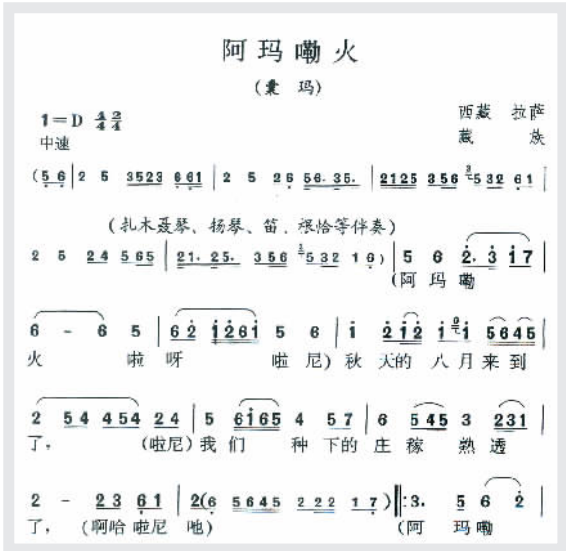 阿玛嘞火
(囊 玛)
1=D 4/4 2/4
中速
西藏 拉萨
藏 族
(5 6 | 2 5 3523 661 | 2 5 26 56. 35. | 2125 356 532 61 |
(扎木聂琴、扬琴、笛、根恰等伴奏)
2 5 24 565 | 21. 25. 356 532 16) | 5 6 2.3 17 |
(阿玛嘞
6 - 6 5 | 62 1261 5 6 | 1 212 1 1 5645 |
火 啦呀 啦尼)秋天的八月来到
2 54 454 24 | 5 6165 4 57 | 6 545 3 231 |
了, (啦尼)我们 种下的庄稼 熟透
2 - 23 61 | 2(6 5645 222 17) ‖: 3. 5 6 2 |
了, (啊哈啦尼吔) (阿玛嘞